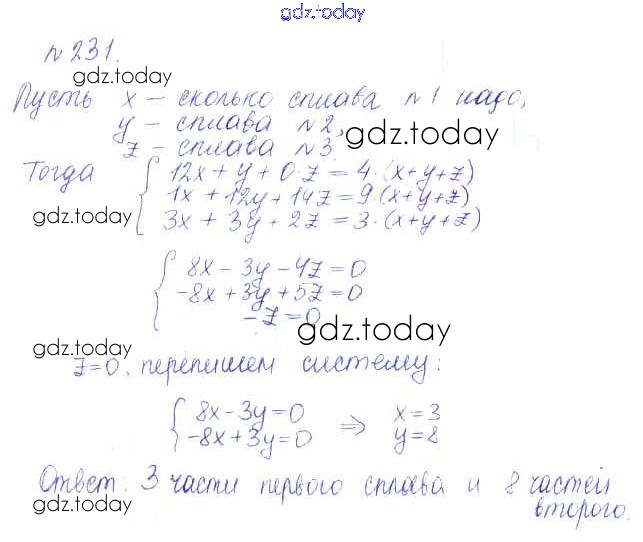 gdz.today
№231.
gdz.today
Пусть x – сколько сплава №1 надо,
y – сплава №2,
gdz.today
z – сплава №3.
Тогда { 12x + y + 0·z = 4·(x+y+z)
1x + 12y + 14z = 9·(x+y+z)
gdz.today
3x + 3y + 2z = 3·(x+y+z)
{ 8x - 3y - 4z = 0
-8x + 3y + 5z = 0
-z = 0
gdz.today
gdz.today
z=0, перепишем систему:
{ 8x-3y=0 ⇒ x=3
-8x+3y=0 y=8
Ответ: 3 части первого сплава и 8 частей
второго.
gdz.today
gdz.today